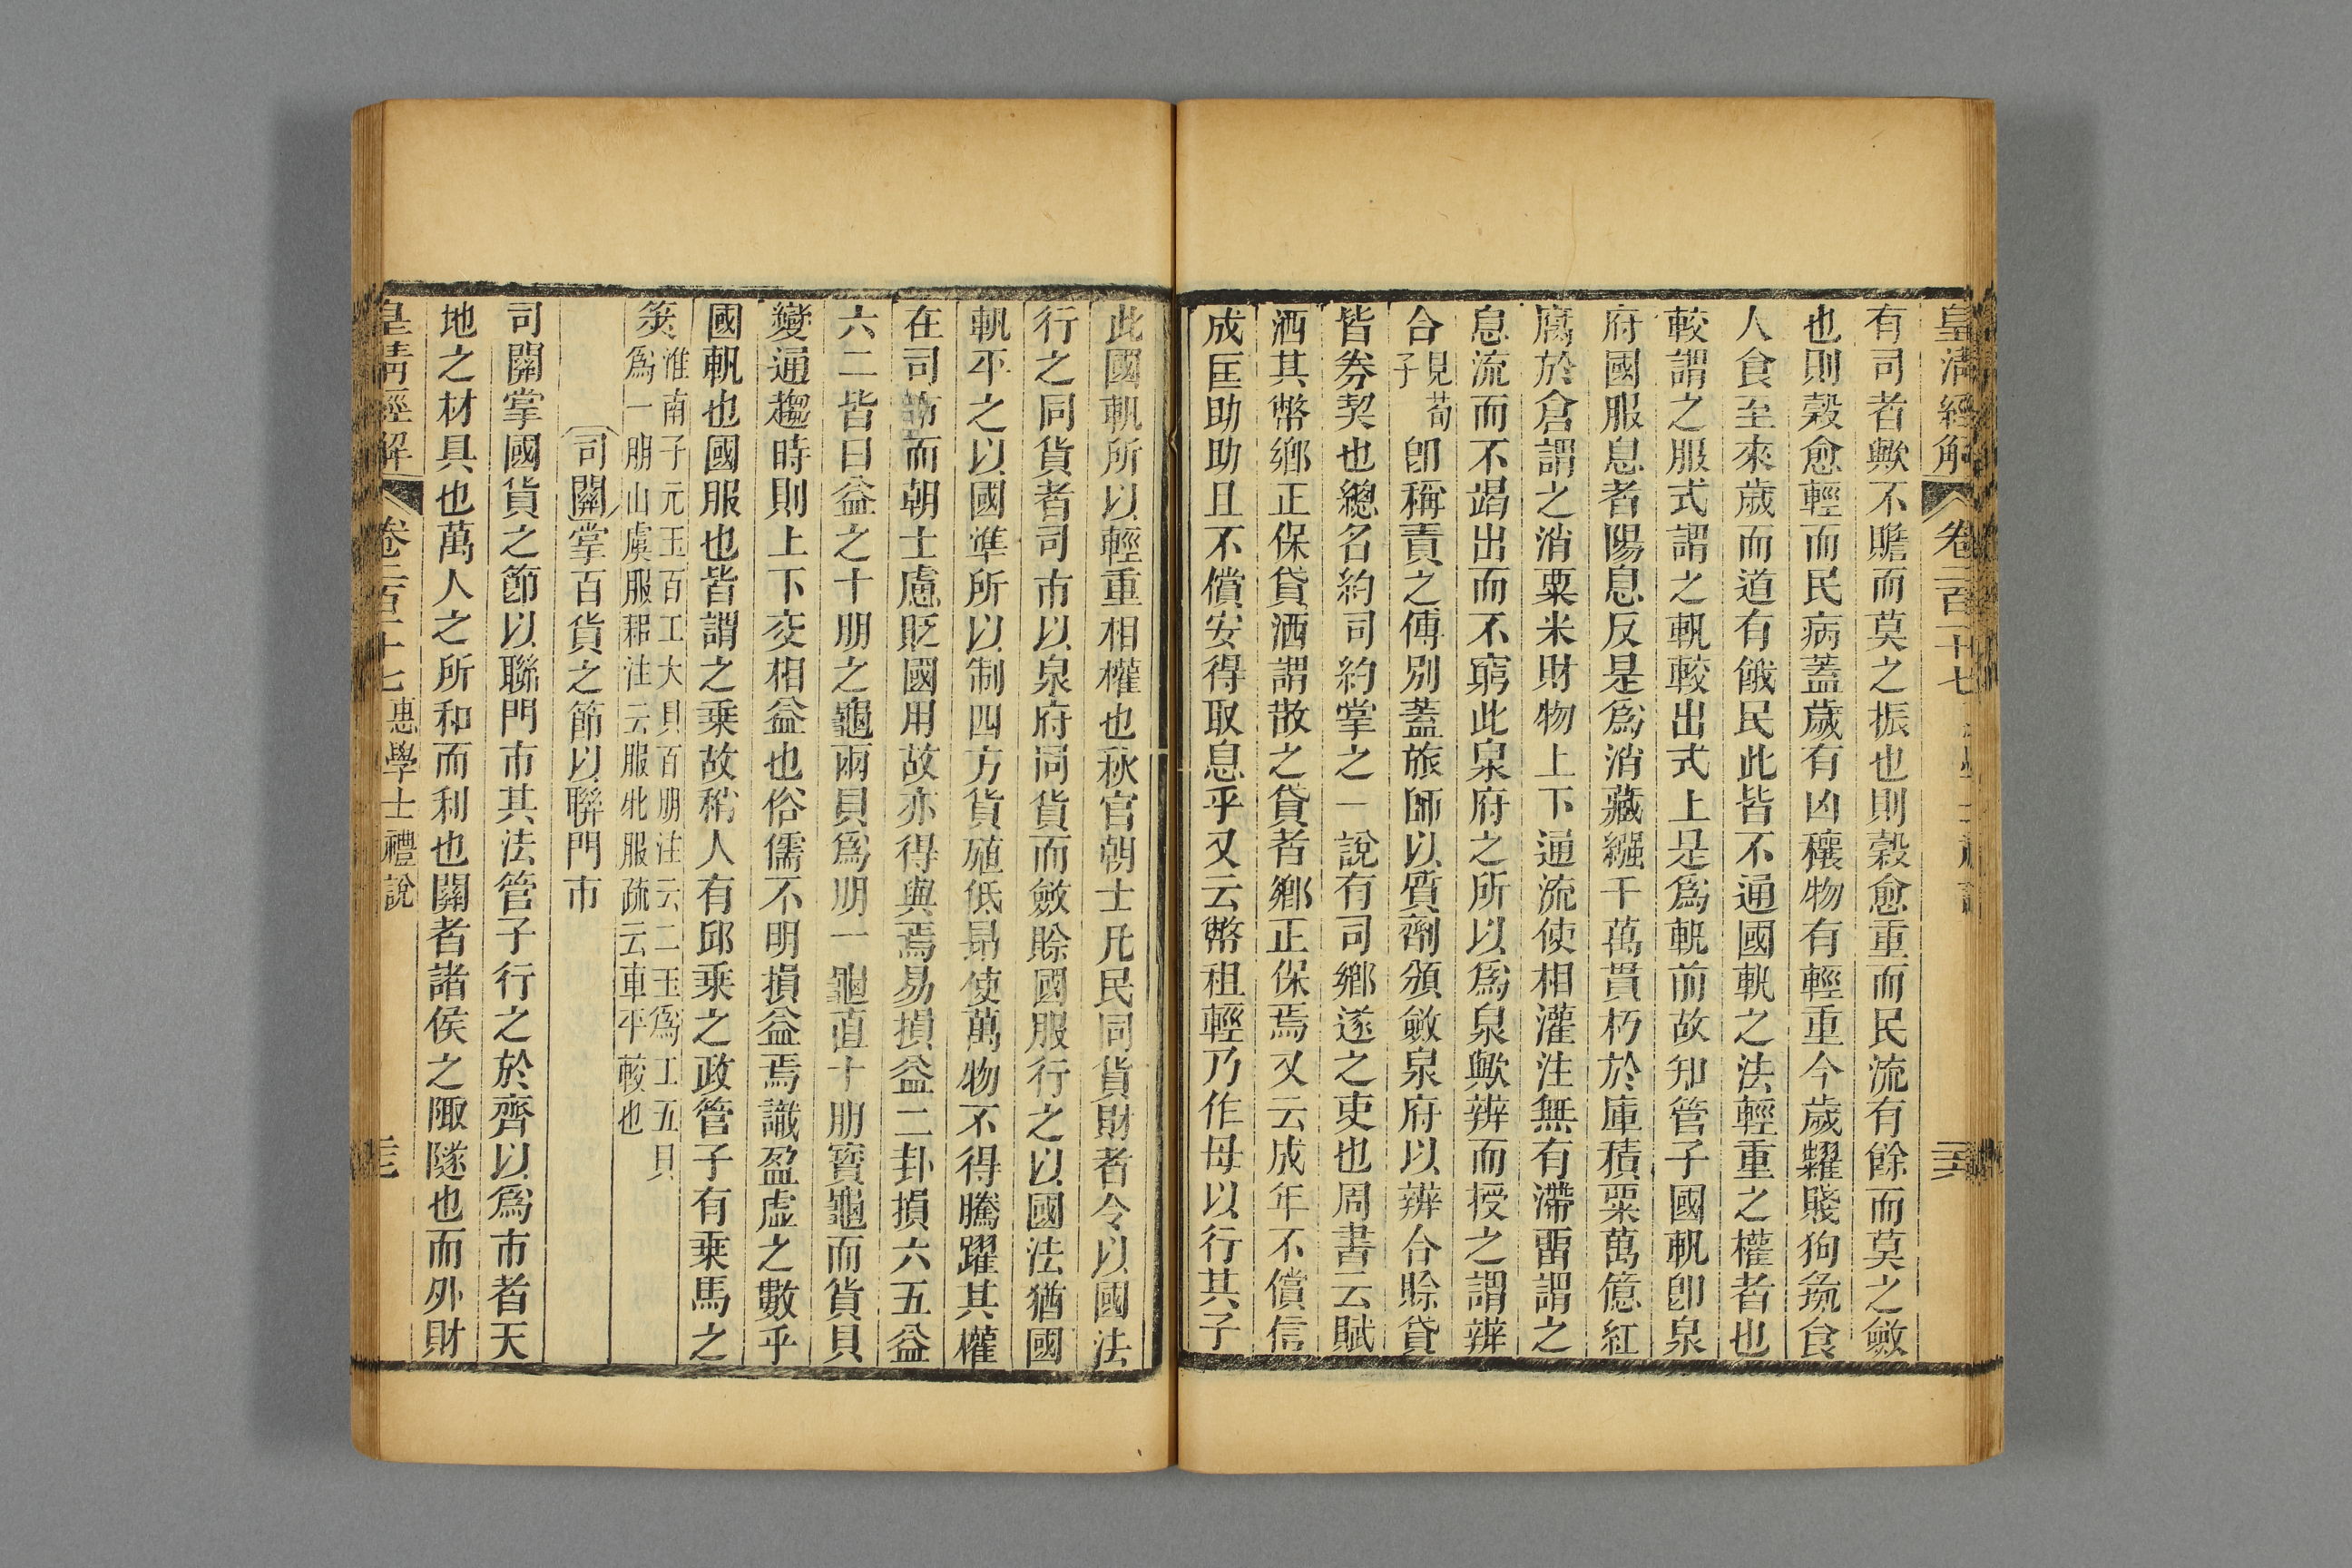 皇清經解 卷二百十七
有司者歟不贍而莫之振也則穀愈重而民流有餘而莫之斂
也則穀愈輕而民病蓋歲有凶穰物有輕重今歲糶賤狗彘食
人食至來歲而道有餓民此皆不通國軌之法輕重之權者也
較謂之服式謂之軌較出式上是爲軌前故知管子國軌卽泉
府國服息者陽息反是爲消藏繦千萬貫朽於庫積粟萬億紅
腐於倉謂之消粟米財物上下通流使相灌注無有滯畱謂之
息流而不竭出而不窮此泉府之所以爲泉歟辨而授之謂辨
合見荀子卽稱責之傅別蓋旅師以質劑頒斂泉府以辨合賒貸
皆券契也總名約司約掌之一說有司鄉遂之吏也周書云賦
洒其幣鄉正保貸洒謂散之貸者鄉正保焉又云成年不償信
成匡助助且不償安得取息乎又云幣租輕乃作母以行其子
此國軌所以輕重相權也秋官朝士凡民同貨財者令以國法
行之同貨者司市以泉府同貨而斂賒國服行之以國法猶國
軌平之以國準所以制四方貨殖低昻使萬物不得騰躍其權
在司市而朝士慮貶國用故亦得與焉易損益二卦損六五益
六二皆曰益之十朋之龜兩貝爲朋一龜直十朋寶龜而貨貝
變通趨時則上下交相益也俗儒不明損益焉識盈虛之數乎
國軌也國服也皆謂之乗故稍人有邱乗之政管子有乗馬之
筴淮南子元玉百工大貝百朋注云二玉爲工五貝爲一朋山虞服耜注云服牝服疏云車平較也
司關掌百貨之節以聯門市
司關掌國貨之節以聯門市其法管子行之於齊以爲市者天
地之材具也萬人之所和而利也關者諸侯之陬隧也而外財
皇清經解 卷二百十七 惠學士禮說